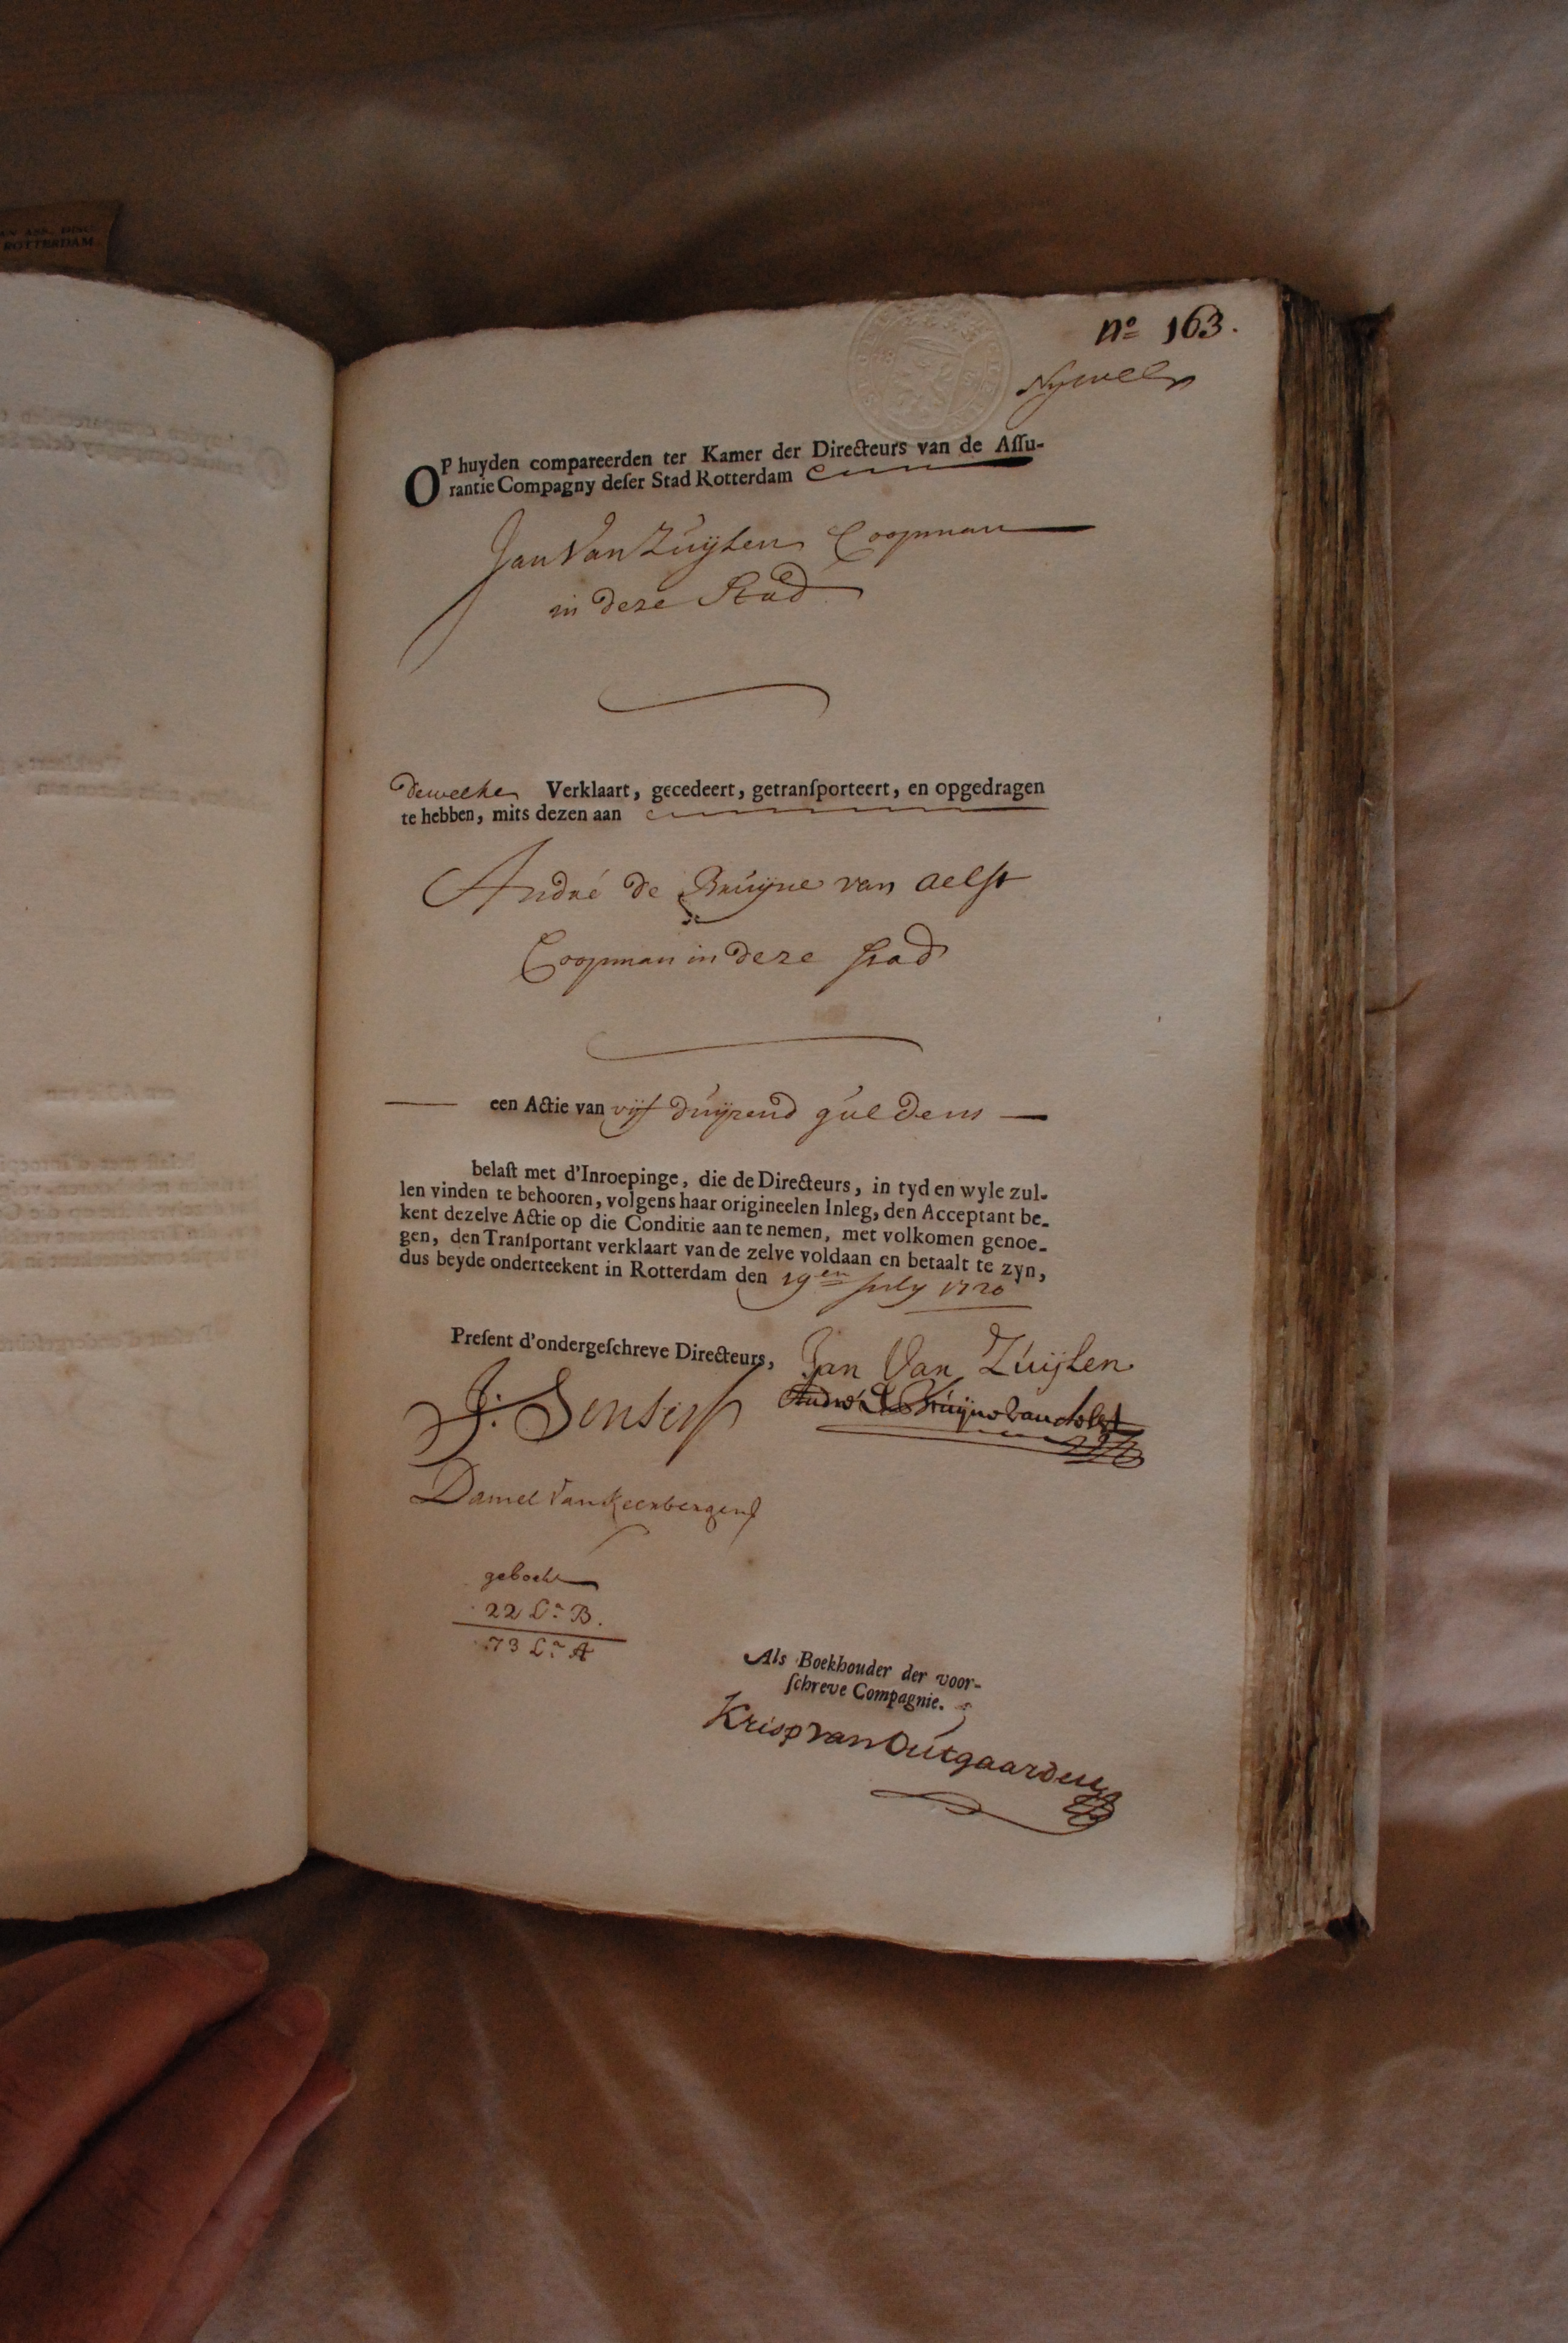 ROTTERDAM
nº 163.
OP huyden compareerden ter Kamer der Directeurs van de Aſſu-
rantie Compagny deſer Stad Rotterdam
Jan Van Zuijlen Coopman
in deze Stad
dewelke Verklaart, gecedeert, getranſporteert, en opgedragen
te hebben, mits dezen aan
André de Bruijne van Aelst
Coopman in deze stad
een Actie van vijf duijzend guldens
belaſt met d'Inroepinge, die de Directeurs, in tyd en wyle zul-
len vinden te behooren, volgens haar origineelen Inleg, den Acceptant be-
kent dezelve Actie op die Conditie aan te nemen, met volkomen genoe-
gen, den Tranſportant verklaart van de zelve voldaan en betaalt te zyn,
dus beyde onderteekent in Rotterdam den 19en July 1720
Preſent d'ondergeſchreve Directeurs,
Jan Van Zuijlen
J: Senserff
André de Bruijne van Aelst
Daniel van Keerbergen
geboekt
22 La B.
73 La A
Als Boekhouder der voor-
ſchreve Compagnie.
Krisp van Outgaarden